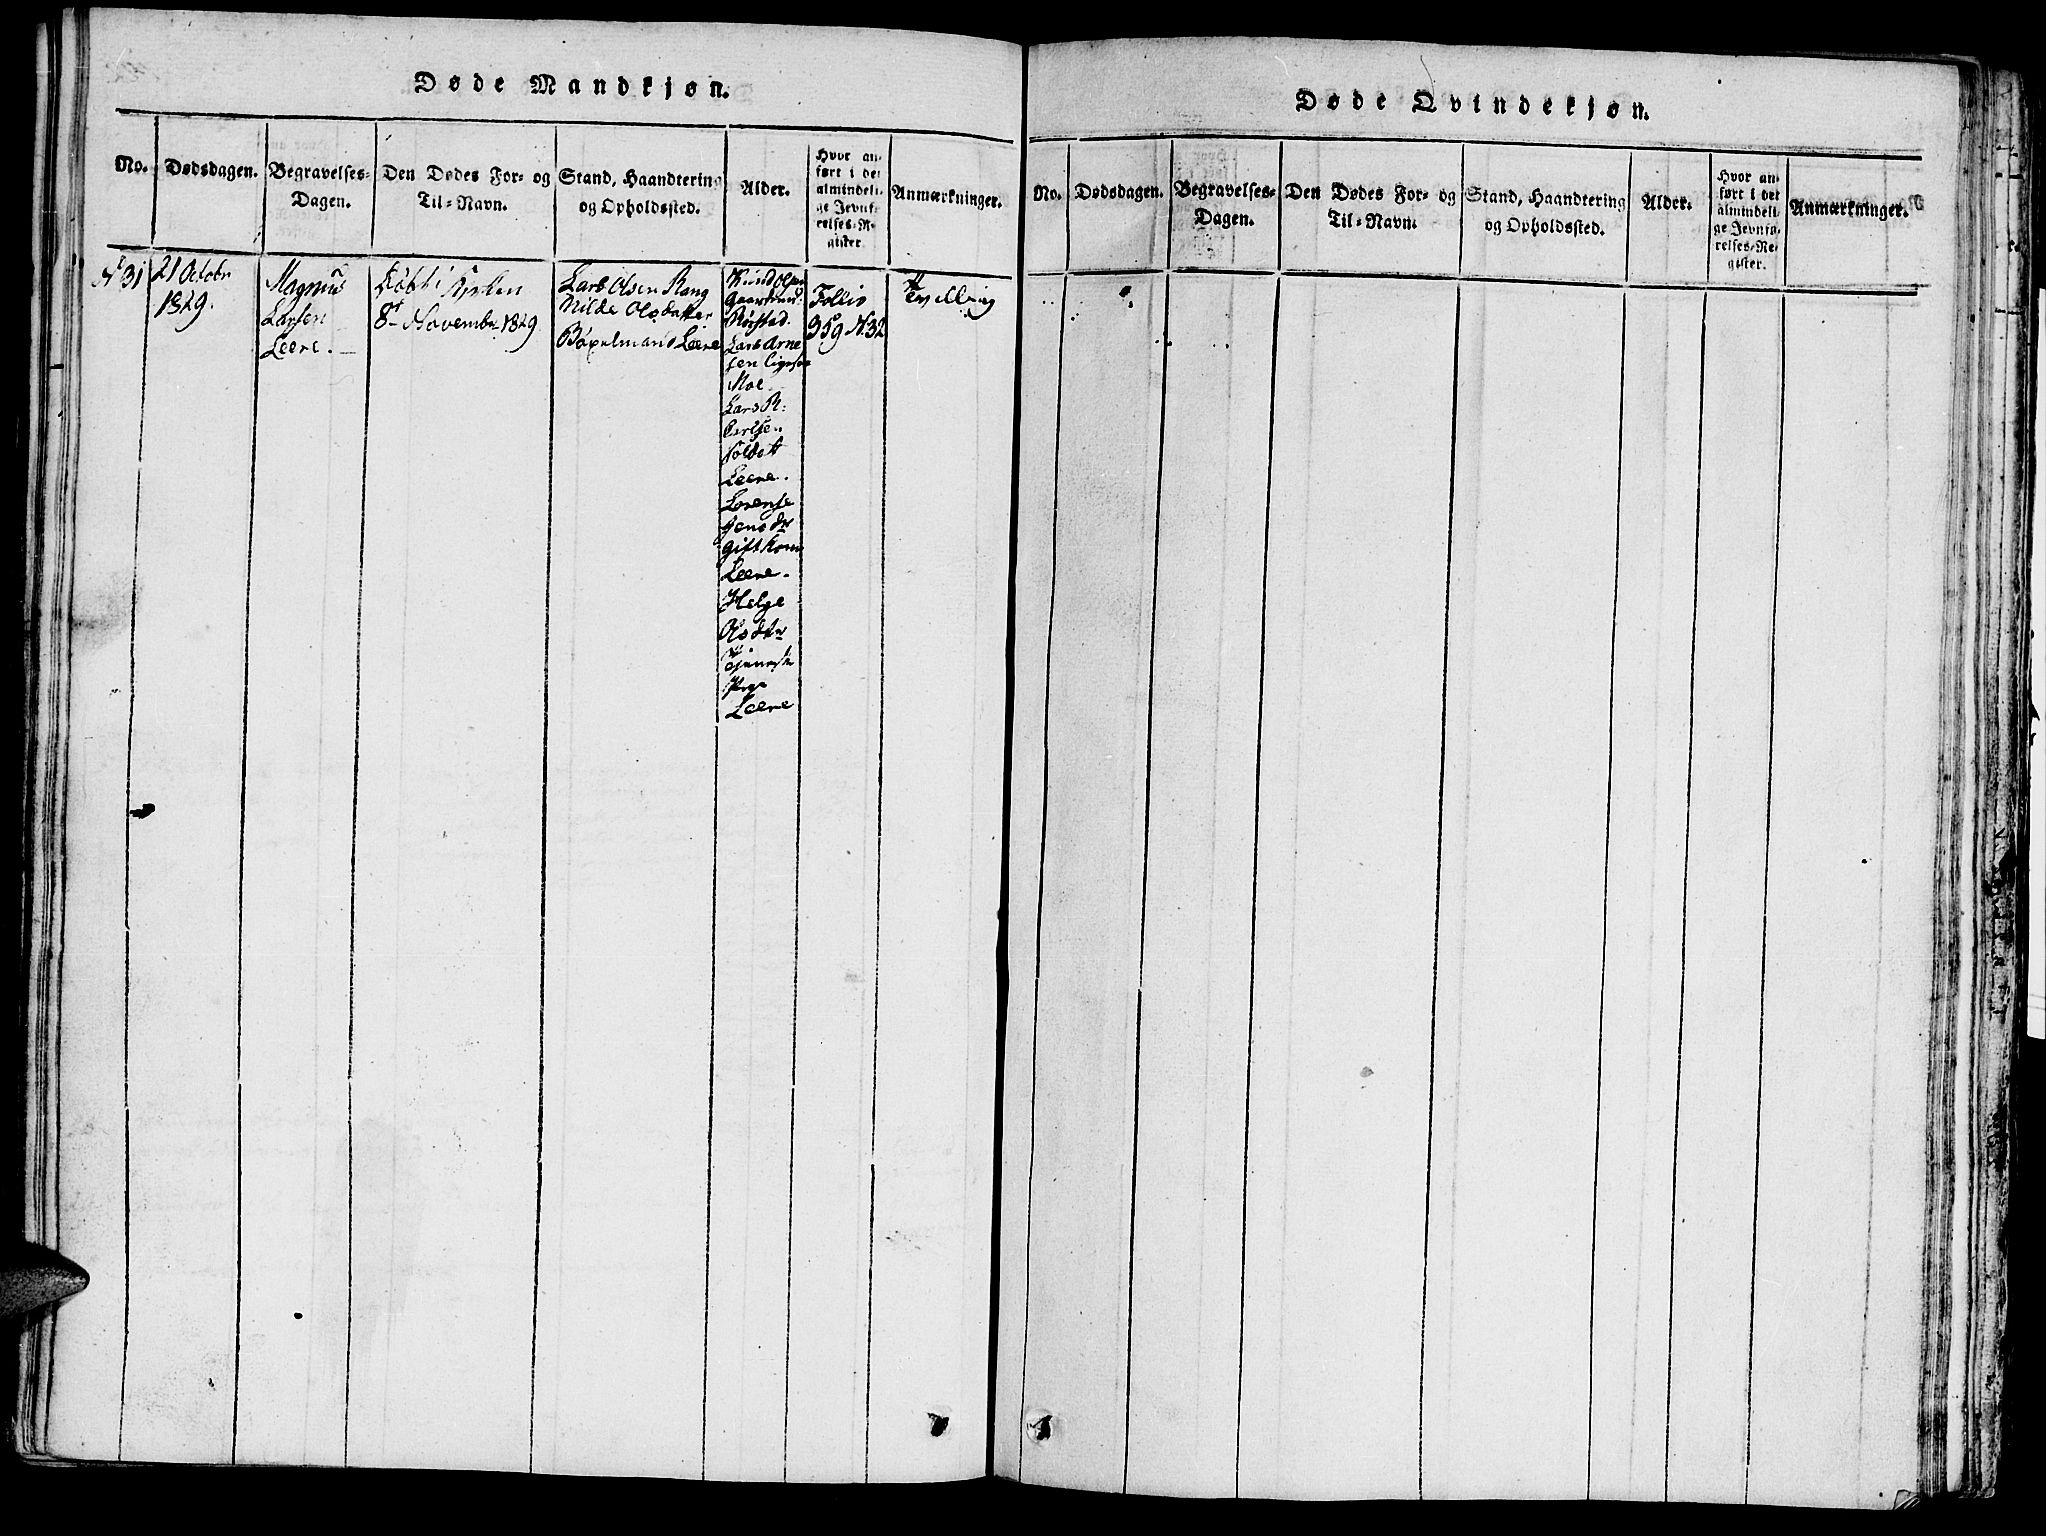 Døde Mandkjøn.
No.
Dødsdagen.
Begravelses-
Dagen.
Den Dødes For- og
Til-Navn.
Stand, Haandtering
og Opholdssted.
Alder.
Hvor an-
ført i det
almindeli-
ge Jevnf-
relses-Re-
gister.
Anmærkninger.
31
21 Octobr
1829.
Magnus
Larsen
Leere.
Døbt i Kirken
8t November 1829
Lars Olsen Rang
nilde Olsdatter
Leere
Knud Olsen
Lars Arne
sen
Moe
Lars
Leere.
Lorense
Jens dtr
gift kone
Leere.
Helge
Olsdtr
Leere
Follio
359 N 32
Tvilling
Døde Qvindekjøn.
No.
Dødsdagen.
Begravelses-
Dagen.
Den Dødes For- og
Til-Navn.
Stand, Haandtering
og Opholdssted.
Alder.
Hvor an-
ført i det
almindeli-
ge Jevnfø-
relses-Re-
gister.
Anmærkninger.